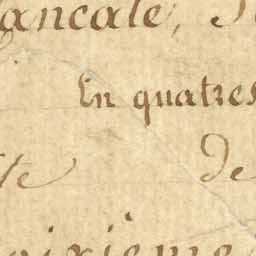 ancale,
En quatres
te de
oixieme